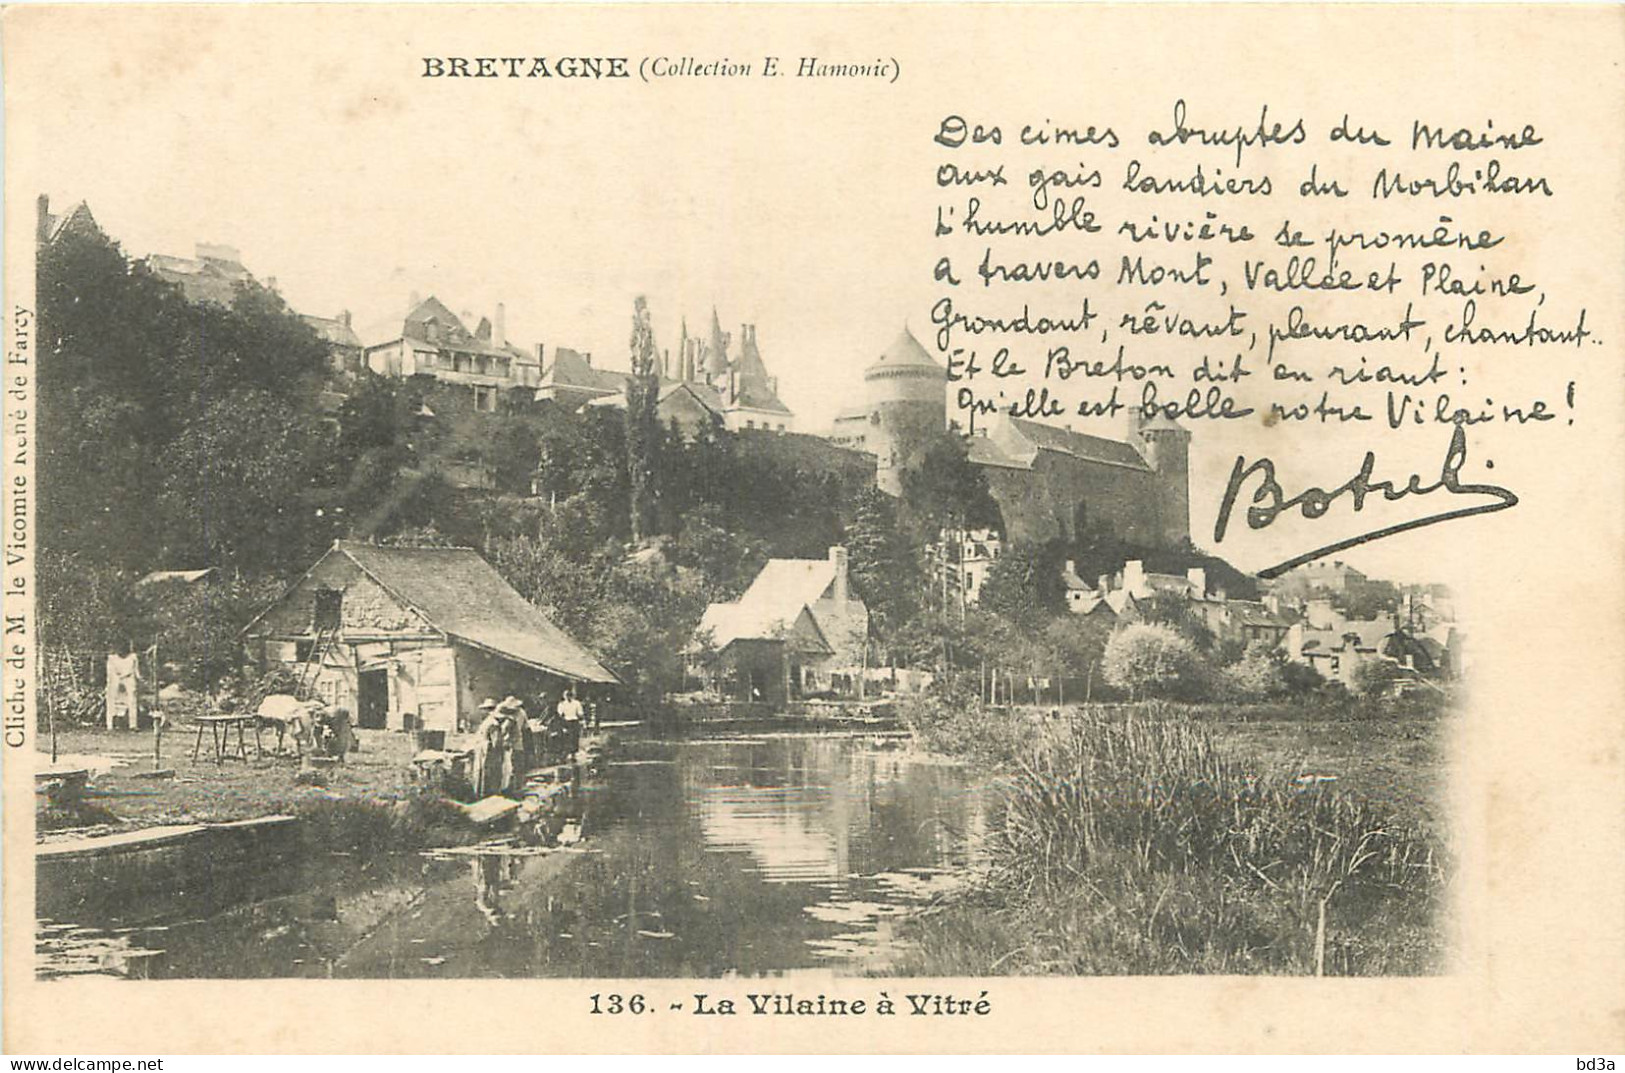 BRETAGNE (Collection E. Hamonic)
Des cimes abruptes du Maine
aux gais landiers du Morbihan
L'humble rivière se promène
a travers Mont, Vallée et Plaine,
Grondant, rêvant, pleurant, chantant..
Et le Breton dit en riant :
Qu'elle est belle notre Vilaine !
Botrel
Cliché de M. le Vicomte René de Farcy
136. - La Vilaine à Vitré
bd3a